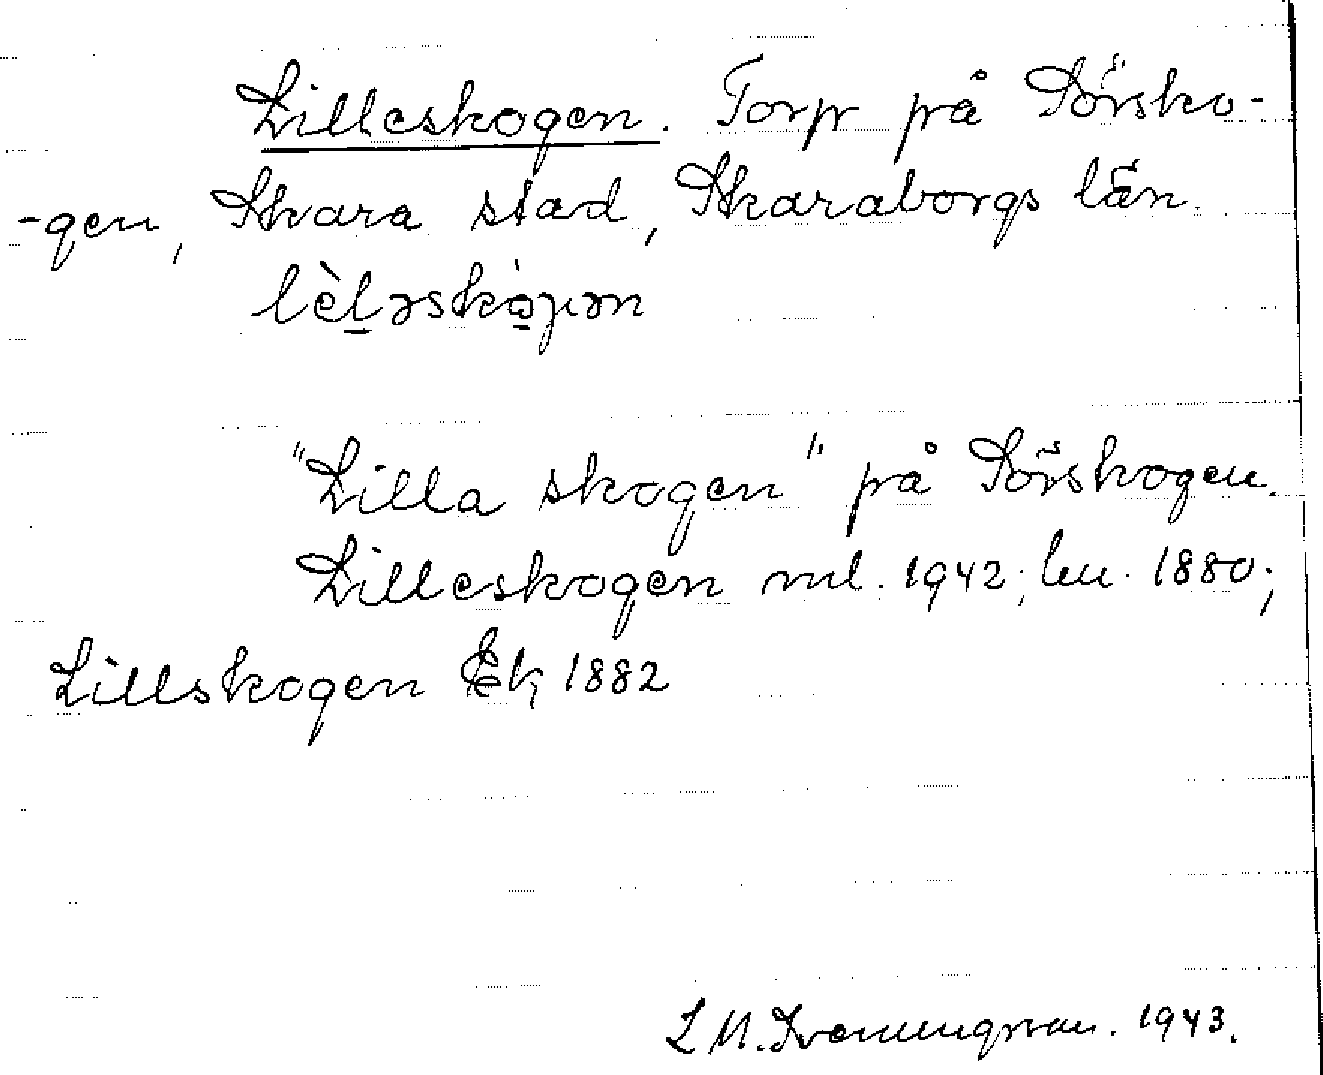 Lilleskogen. Torp på Sörsko-
-gen, Skara stad, Skaraborgs län.
lèləskòγən
"Lilla skogen" på Sörskogen.
Lilleskogen ml. 1942; hu. 1880;
Lillskogen Ek 1882
L M. Svenungsson. 1943.